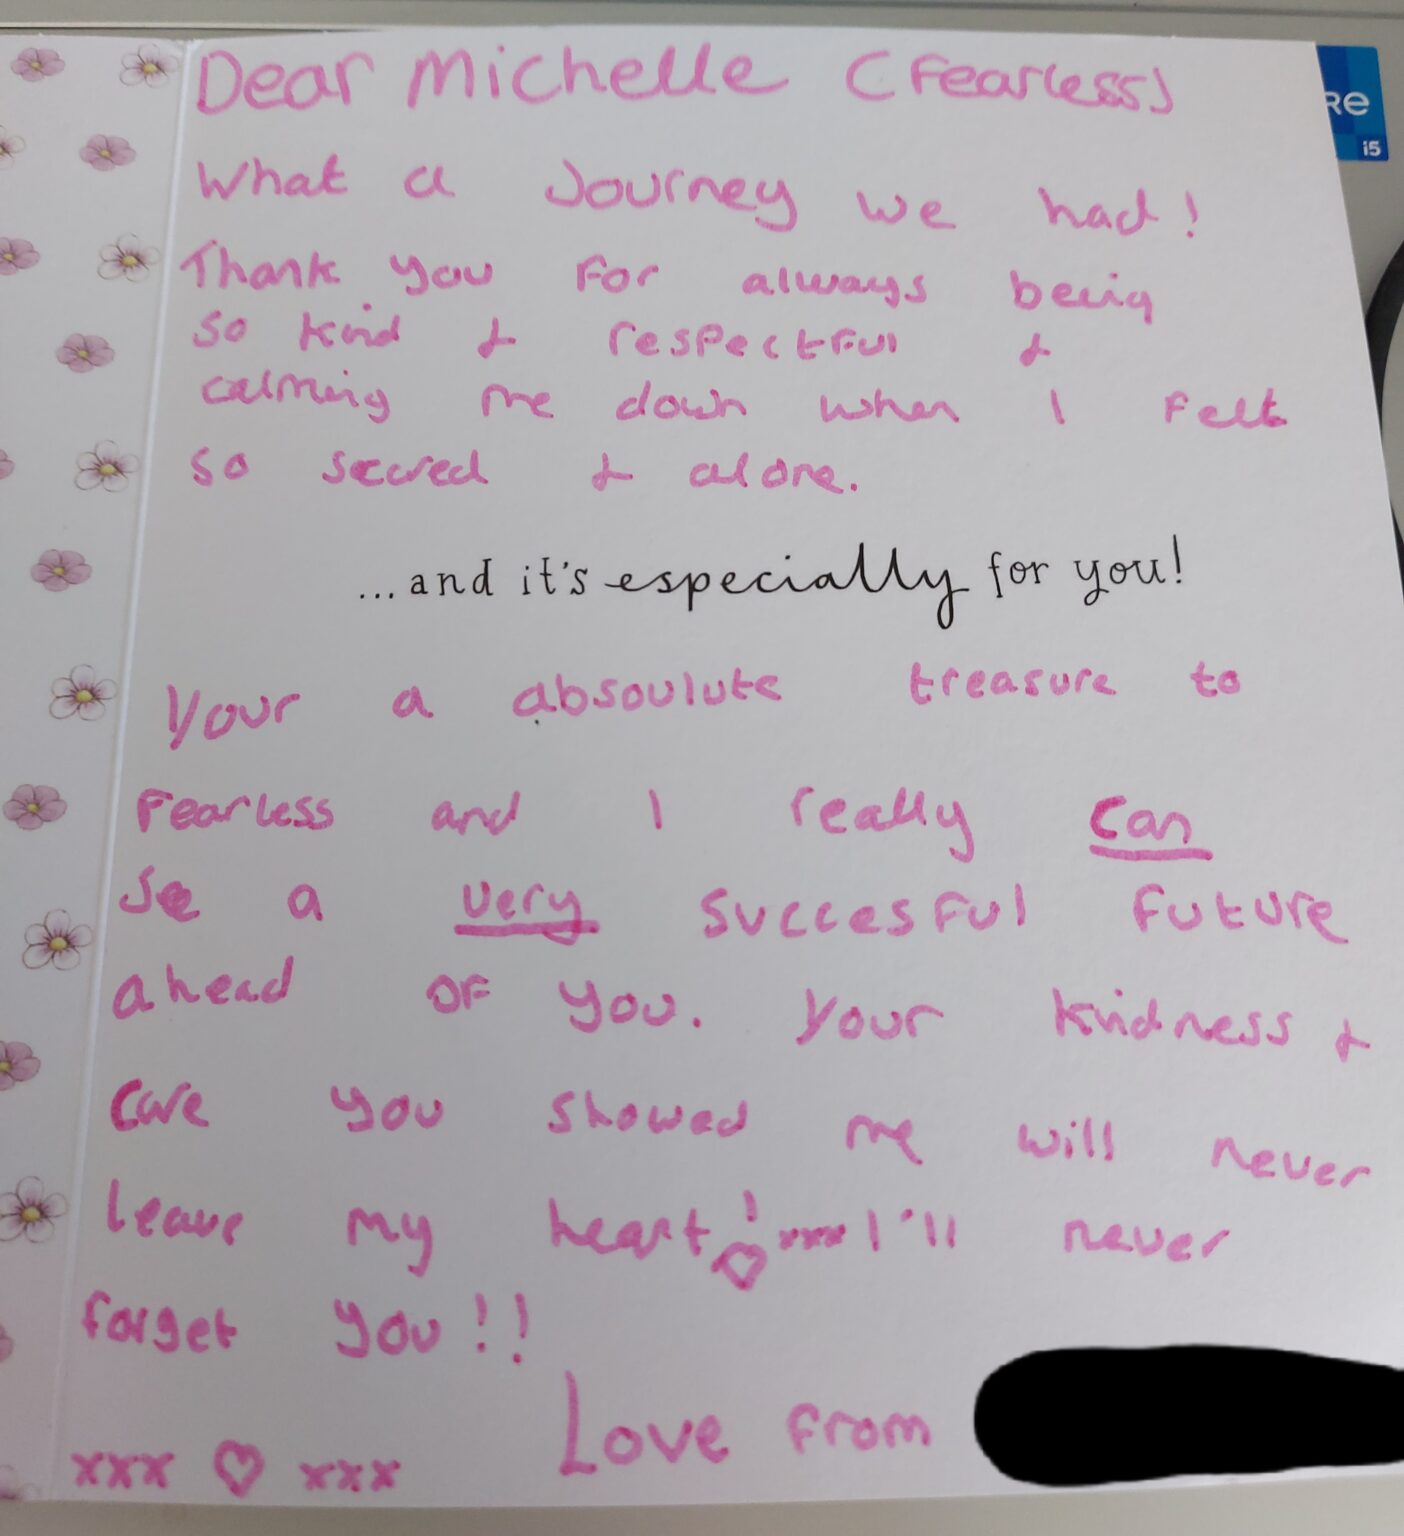 Dear Michelle (Fearless)
What a Journey we had!
Thank you for always being
so kind & respectful &
calming me down when I felt
so scared & alone.
...and it's especially for you!
Your a absoulute treasure to
Fearless and I really can
see a very succesful future
ahead of you. Your kindness &
care you showed me will never
leave my heart! ♡ xxx I'll never
forget you!!
Love from
xxx ♡ xxx
RE
i5